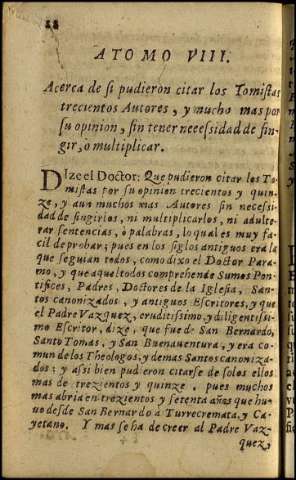 ATOMO VIII.
Acerca de si pudieron citar los Tomistas
trecientos Autores, y mucho mas por
su opinion, sin tener necessidad de fin-
gir, ò multiplicar.
DIze el Doctor: Que pudieron citar los To-
mistas por su opinion trecientos y quin-
ze, y aun muchos mas Autores sin necessi-
dad de fingirlos, ni multiplicarlos, ni adulte-
rar sentencias, ò palabras, lo qual es muy fa-
cil de probar; pues en los siglos antiguos era la
que seguian todos, como dixo el Doctor Para-
mo, y que aquel todos comprehende Sumos Pon-
tifices, Padres, Doctores de la Iglesia, San-
tos canonizados, y antiguos Escritores, y que
el Padre Vazquez, eruditissimo, y diligentissi-
mo Escritor, dize, que fue de San Bernardo,
Santo Tomas, y San Buenaventura, y era co-
mun de los Theologos, y demas Santos canoniza-
dos; y assi bien pudieron citarse de solos ellos
mas de trezientos y quinze, pues muchos
mas abria en trezientos y setenta años que hu-
vo desde San Bernardo à Turrecremata, y Ca-
yetano. Y mas se ha de creer al Padre Vaz-
quez,